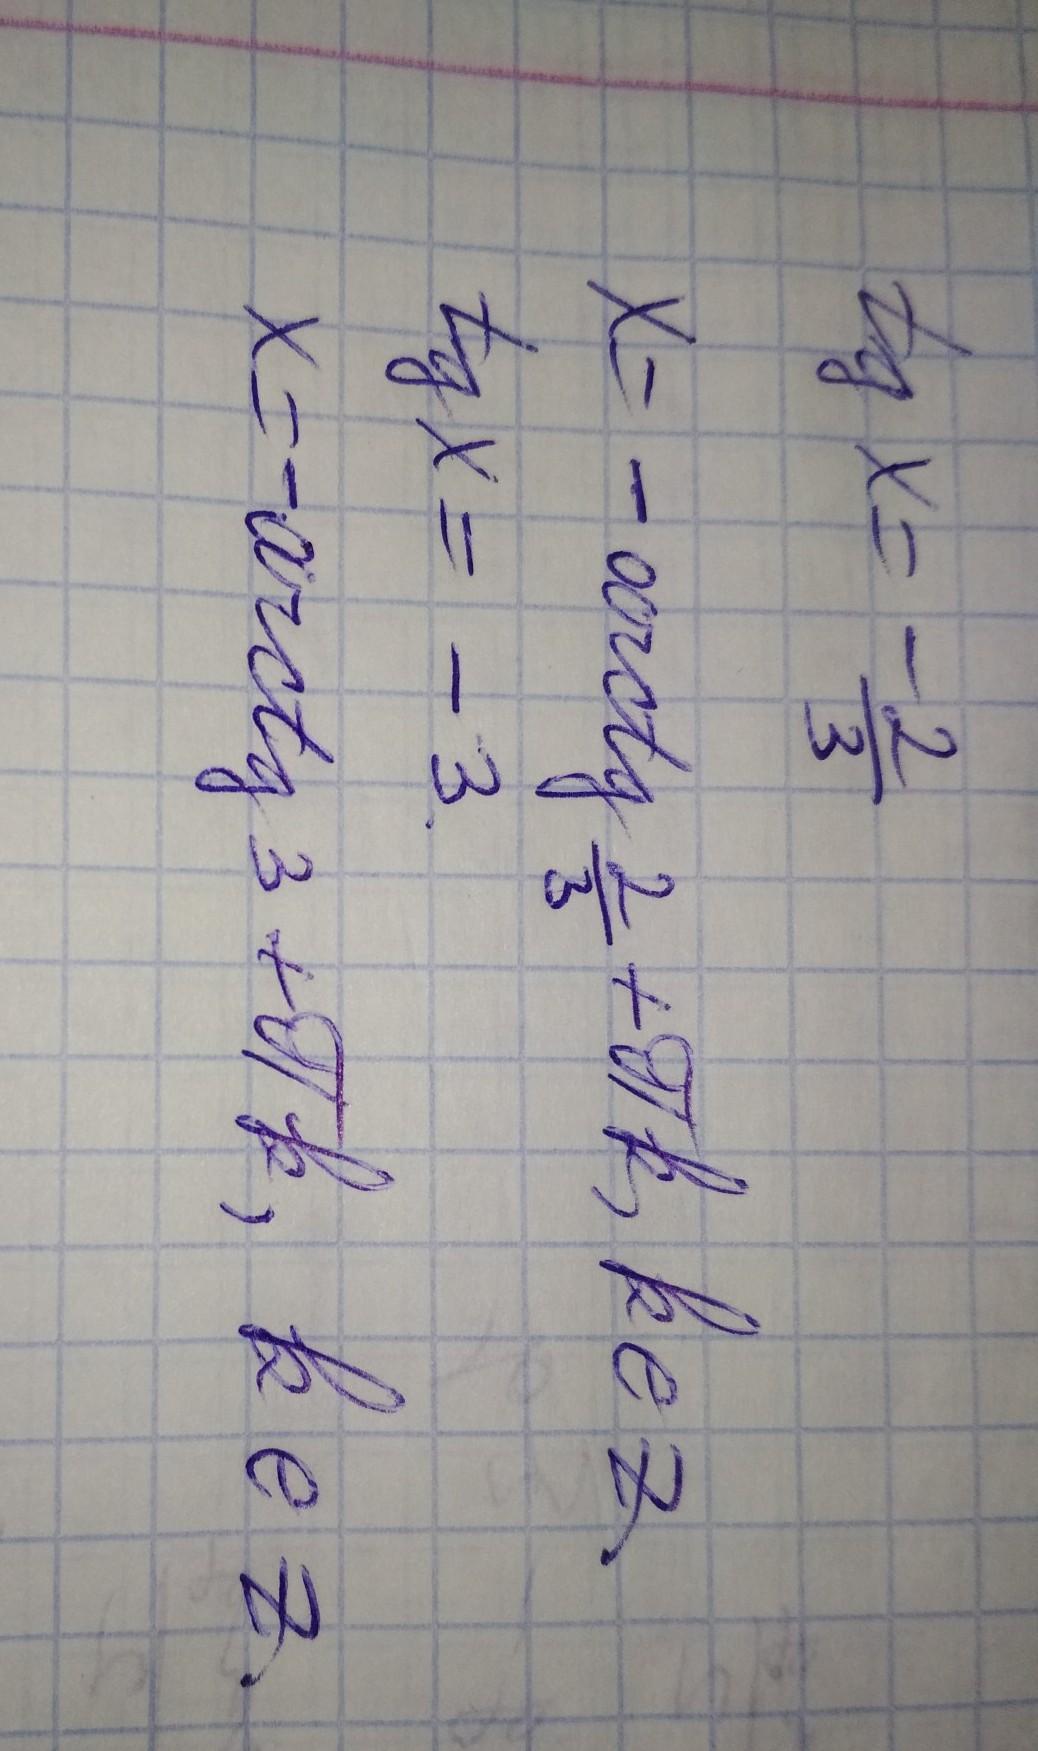 tg x = -2/3
x = - arctg 2/3 + πk, k ∈ Z.
tg x = - 3.
x = - arctg 3 + πk, k ∈ Z.